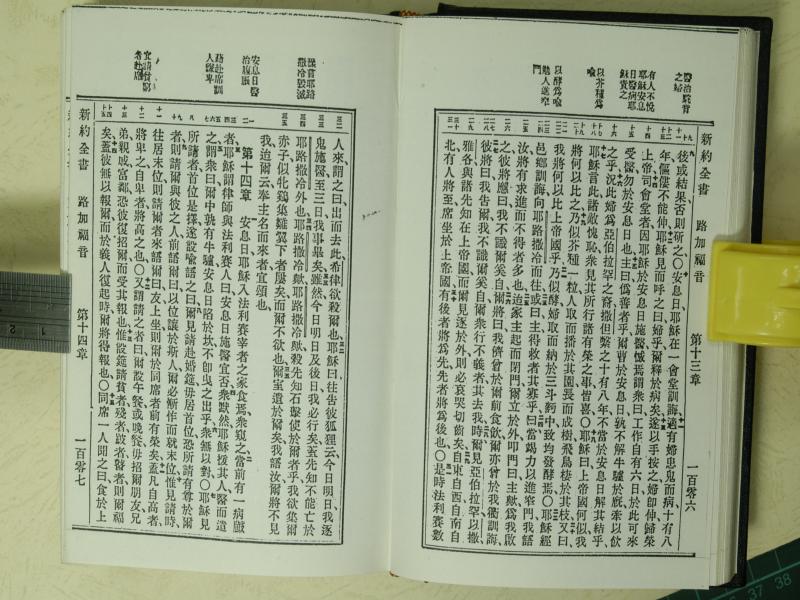 新約全書 路加福音 第十三章 一百零六
醫治駝背之婦
有人不悅耶穌安息日醫病耶穌責之
以芥種爲喻
以酵爲喻
勉人進窄門
後或結果否則斫之〇安息日耶穌在一會堂訓誨適有婦患鬼而病十有八
年傴僂不能伸耶穌見而呼之曰婦乎爾釋於病矣遂以手按之婦卽伸歸榮
上帝司會堂者因耶穌於安息日施醫慍焉謂衆曰工作自有六日於此可來
受醫勿於安息日也主曰僞善者乎爾曹於安息日孰不解牛驢於廐牽以飲
之乎況此婦爲亞伯拉罕之裔撒但繫之十有八年不當於安息日解其結乎
耶穌言此諸敵愧恥衆見其所行諸有榮之事皆喜〇耶穌曰上帝國何似我
將何以比之乃似芥種一粒人取而播於其園長而成樹飛鳥棲於其枝又曰
我將何以比上帝國乎乃似酵婦取而納於三斗麪中致均發酵焉〇耶穌經
邑鄉訓誨向耶路撒冷而往或曰主得救者其寡乎曰當竭力以進窄門我語
汝將有求進而不得者多也迨家主起而閉門爾立於外叩門曰主歟爲我啟
之彼將應曰我不識爾奚自爾將曰我儕曾於爾前食飲爾亦曾於我衢訓誨
彼將曰我告爾我不識爾奚自爾衆行不義者其去我時爾見亞伯拉罕以撒
雅各與諸先知在上帝國而爾見逐於外則必哀哭切齒矣自東自西自南自
北有人將至席坐於上帝國有後者將爲先先者將爲後也〇是時法利賽數
嘆耶路撒冷毀滅
安息日醫治臌脹
赴席訓人謙卑
宜請貧窮者赴席
人來謂之曰出而去此希律欲殺爾也耶穌曰往告彼狐狸云今日明日我逐
鬼施醫至三日我事畢矣雖然今日明日及後日我必行矣蓋先知不能亡於
耶路撒冷外也耶路撒冷歟耶路撒冷歟殺先知石擊使於爾者乎我欲集爾
赤子似牝鷄集雛翼下者屢矣而爾不欲也爾室遺於爾矣我語汝爾將不見
我迨爾云奉主名而來者宜頌也
第十四章 安息日耶穌入法利賽宰者之家食焉衆窺之當前有一病臌
者耶穌謂律師與法利賽人曰安息日施醫宜否衆默然耶穌援其人醫而遣
之謂衆曰爾中孰有牛驢安息日陷於坎不卽曳之出乎衆無以對〇耶穌見
所請者首位是擇遂設喻語之曰爾見請赴婚筵毋居首位恐所請有尊於爾
者則請爾與彼之人前語爾曰以位讓於斯人爾必慚怍而就末位惟見請時
往居末位則請爾者來語爾曰友上坐則爾於同席者前有榮矣蓋凡自高者
將卑之自卑者將高之也〇又謂請之者曰爾設午餐或晚餐毋招爾朋友兄
弟親戚富鄰恐彼復招爾而受其報也惟設筵請貧者殘者跛者瞽者則爾福
矣蓋彼無以報爾而於義人復起時爾將得報也〇同席一人聞之曰食於上
新約全書 路加福音 第十四章 一百零七
1
2
37
38